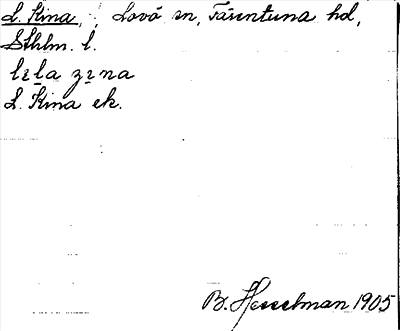 L. Kina, Lovö sn, Färentuna hd,
Sthlm. l.
L. Kina ek.
B. Hesselman 1905